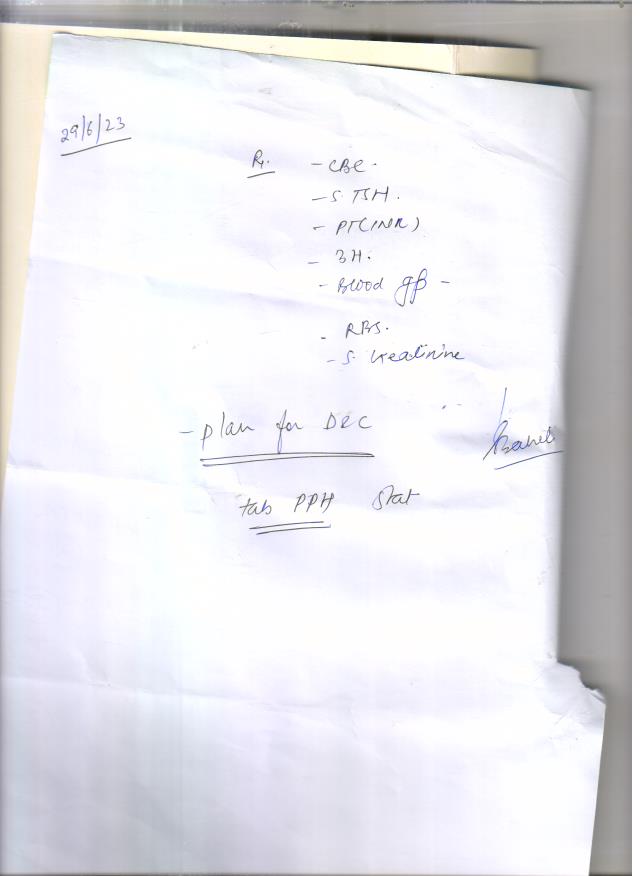 29/6/23
Rx. - CBC.
- S. TSH.
- PT(INR)
- 3H.
- Blood gp -
- RBS.
- S. Creatinine
- plan for D&C
tab PPH stat